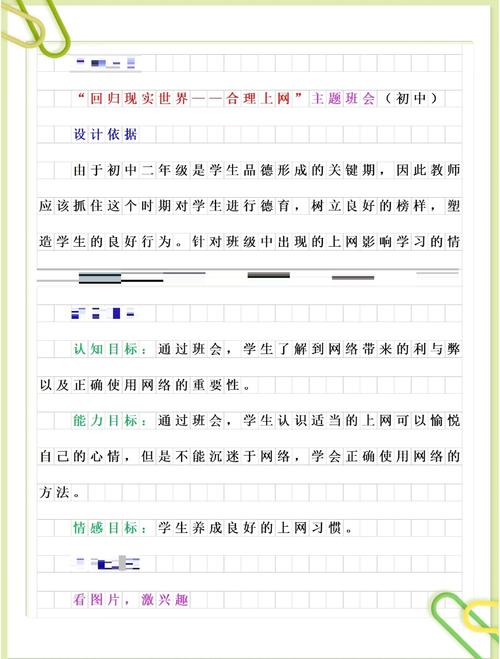 “回归现实世界——合理上网”主题班会（初中）
设计依据
由于初中二年级是学生品德形成的关键期，因此教师
应该抓住这个时期对学生进行德育，树立良好的榜样，塑
造学生的良好行为。针对班级中出现的上网影响学习的情
认知目标：通过班会，学生了解到网络带来的利与弊
以及正确使用网络的重要性。
能力目标：通过班会，学生认识适当的上网可以愉悦
自己的心情，但是不能沉迷于网络，学会正确使用网络的
方法。
情感目标：学生养成良好的上网习惯。
看图片，激兴趣